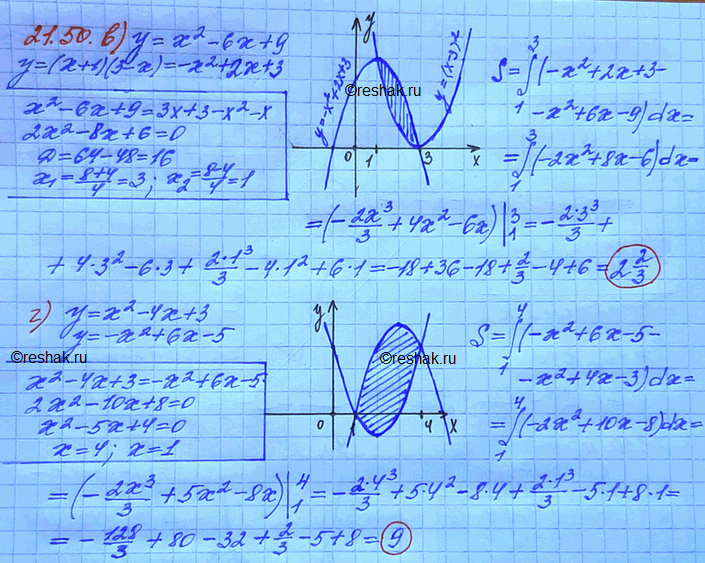 21.50. в) y = x² - 6x + 9
y = (x+1)(3-x) = -x² + 2x + 3
x² - 6x + 9 = 3x + 3 - x² - x
2x² - 8x + 6 = 0
D = 64 - 48 = 16
x₁ = (8+4)/4 = 3; x₂ = (8-4)/4 = 1
y
y = -x² + 2x + 3
y = (x-3)²
©reshak.ru
0 1 3 x
S = ∫₁³ (-x² + 2x + 3 -
- x² + 6x - 9) dx =
= ∫₁³ (-2x² + 8x - 6) dx =
= (-2x³/3 + 4x² - 6x) |₁³ = -2·3³/3 +
+ 4·3² - 6·3 + 2·1³/3 - 4·1² + 6·1 = -18 + 36 - 18 + 2/3 - 4 + 6 = 2 2/3
г) y = x² - 4x + 3
y = -x² + 6x - 5
©reshak.ru
x² - 4x + 3 = -x² + 6x - 5
2x² - 10x + 8 = 0
x² - 5x + 4 = 0
x = 4; x = 1
y
©reshak.ru
0 1 4 x
S = ∫₁⁴ (-x² + 6x - 5 -
- x² + 4x - 3) dx =
= ∫₁⁴ (-2x² + 10x - 8) dx =
= (-2x³/3 + 5x² - 8x) |₁⁴ = -2·4³/3 + 5·4² - 8·4 + 2·1³/3 - 5·1 + 8·1 =
= -128/3 + 80 - 32 + 2/3 - 5 + 8 = 9